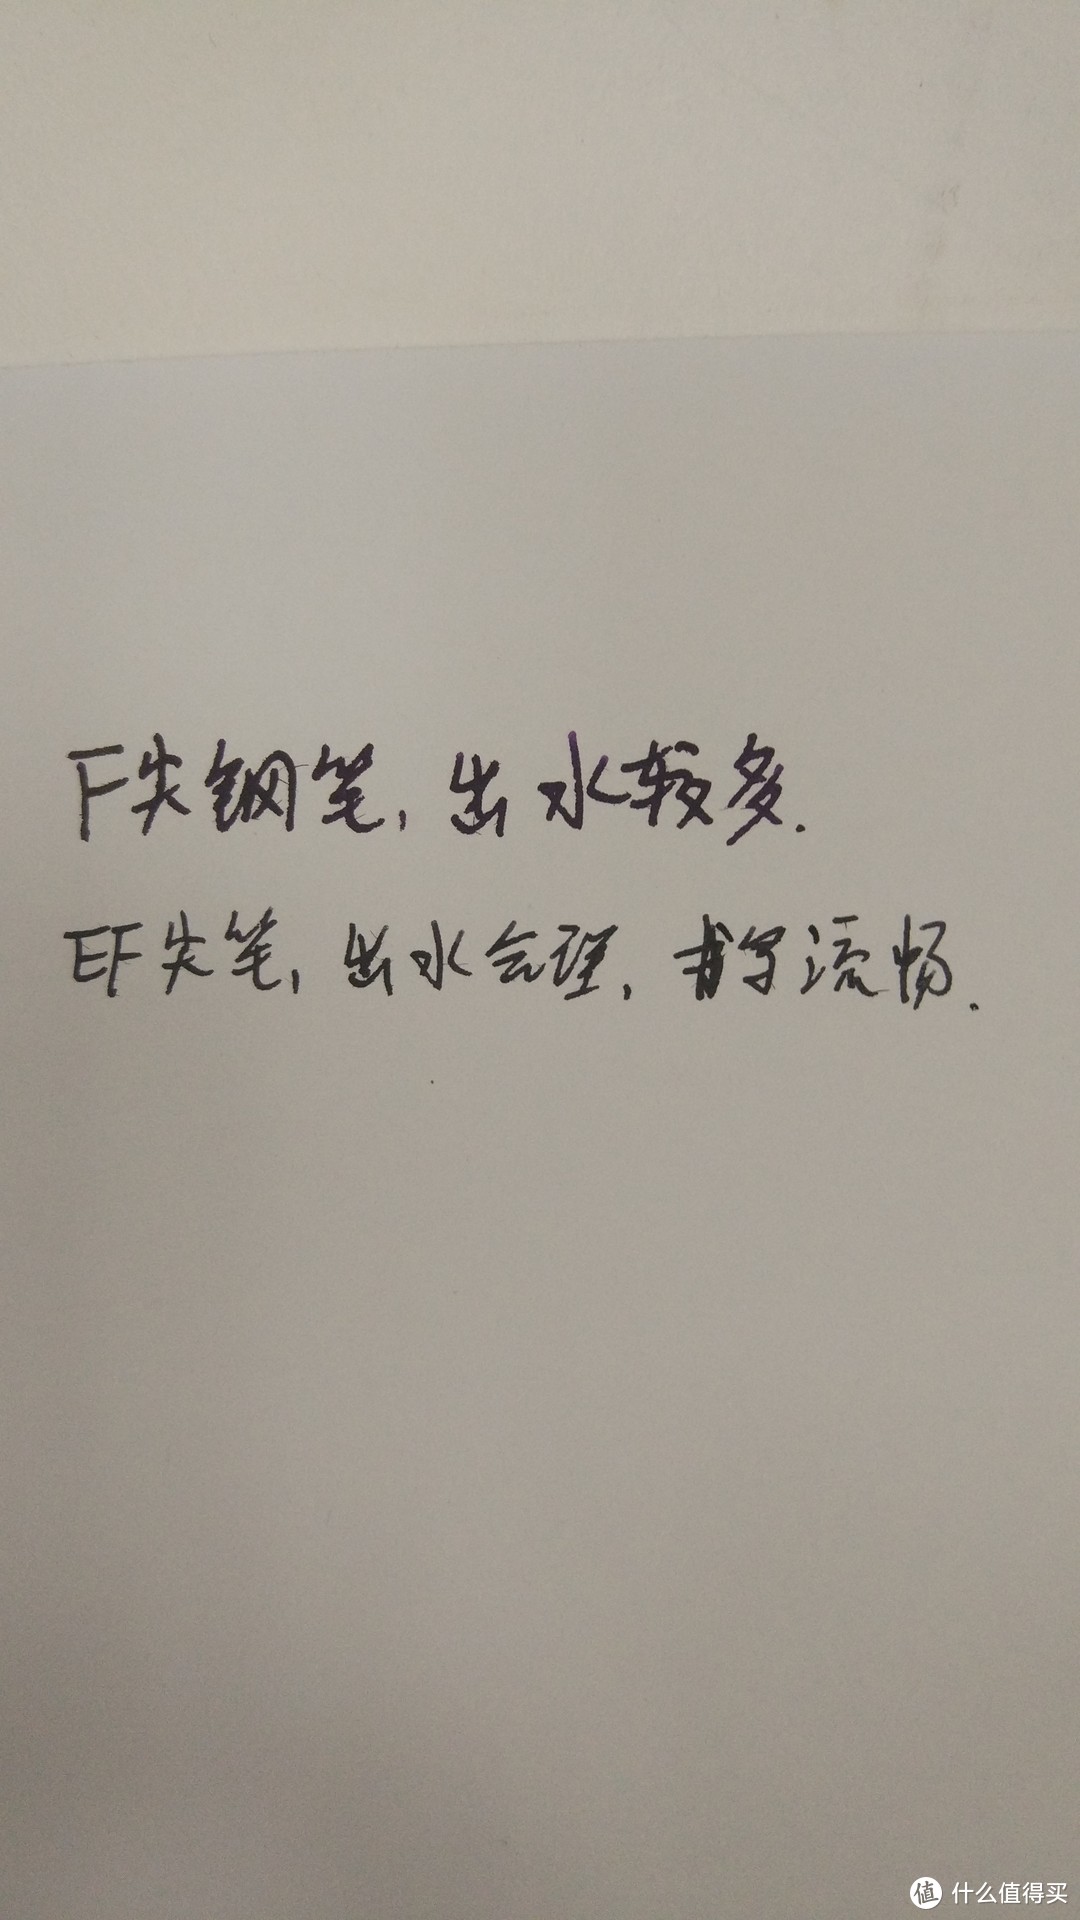 F尖钢笔，出水较多.
EF尖笔，出水合理，书写流畅.
值 什么值得买